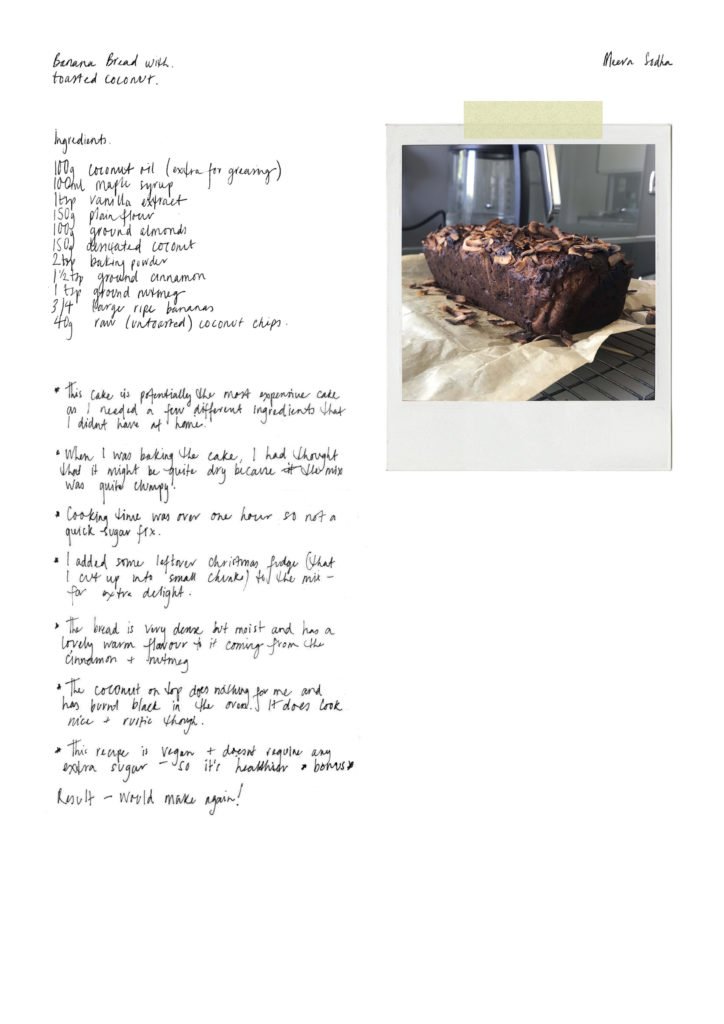 Banana Bread with.
toasted coconut.
Meera Sodha
Ingredients.
100g coconut oil (extra for greasing)
100ml maple syrup
1tsp vanilla extract
150g plain flour
100g ground almonds
150g desiccated coconut
2tsp baking powder
1½tsp ground cinnamon
1 tsp ground nutmeg
3/4 large ripe bananas
40g raw (untoasted) coconut chips.
* This cake is potentially the most expensive cake
as I needed a few different ingredients that
I didnt have at home.
* When I was baking the cake, I had thought
that it might be quite dry because the mix
was quite clumpy.
* Cooking time was over one hour so not a
quick sugar fix.
* I added some leftover christmas fudge (that
I cut up into small chunks) to the mix –
for extra delight.
* The bread is very dense but moist and has a
lovely warm flavour to it coming from the
cinnamon + nutmeg
* The coconut on top does nothing for me and
has burnt black in the oven. It does look
nice + rustic though.
* This recipe is vegan + doesnt require any
extra sugar – so it's healthier * bonus*
Result – would make again!